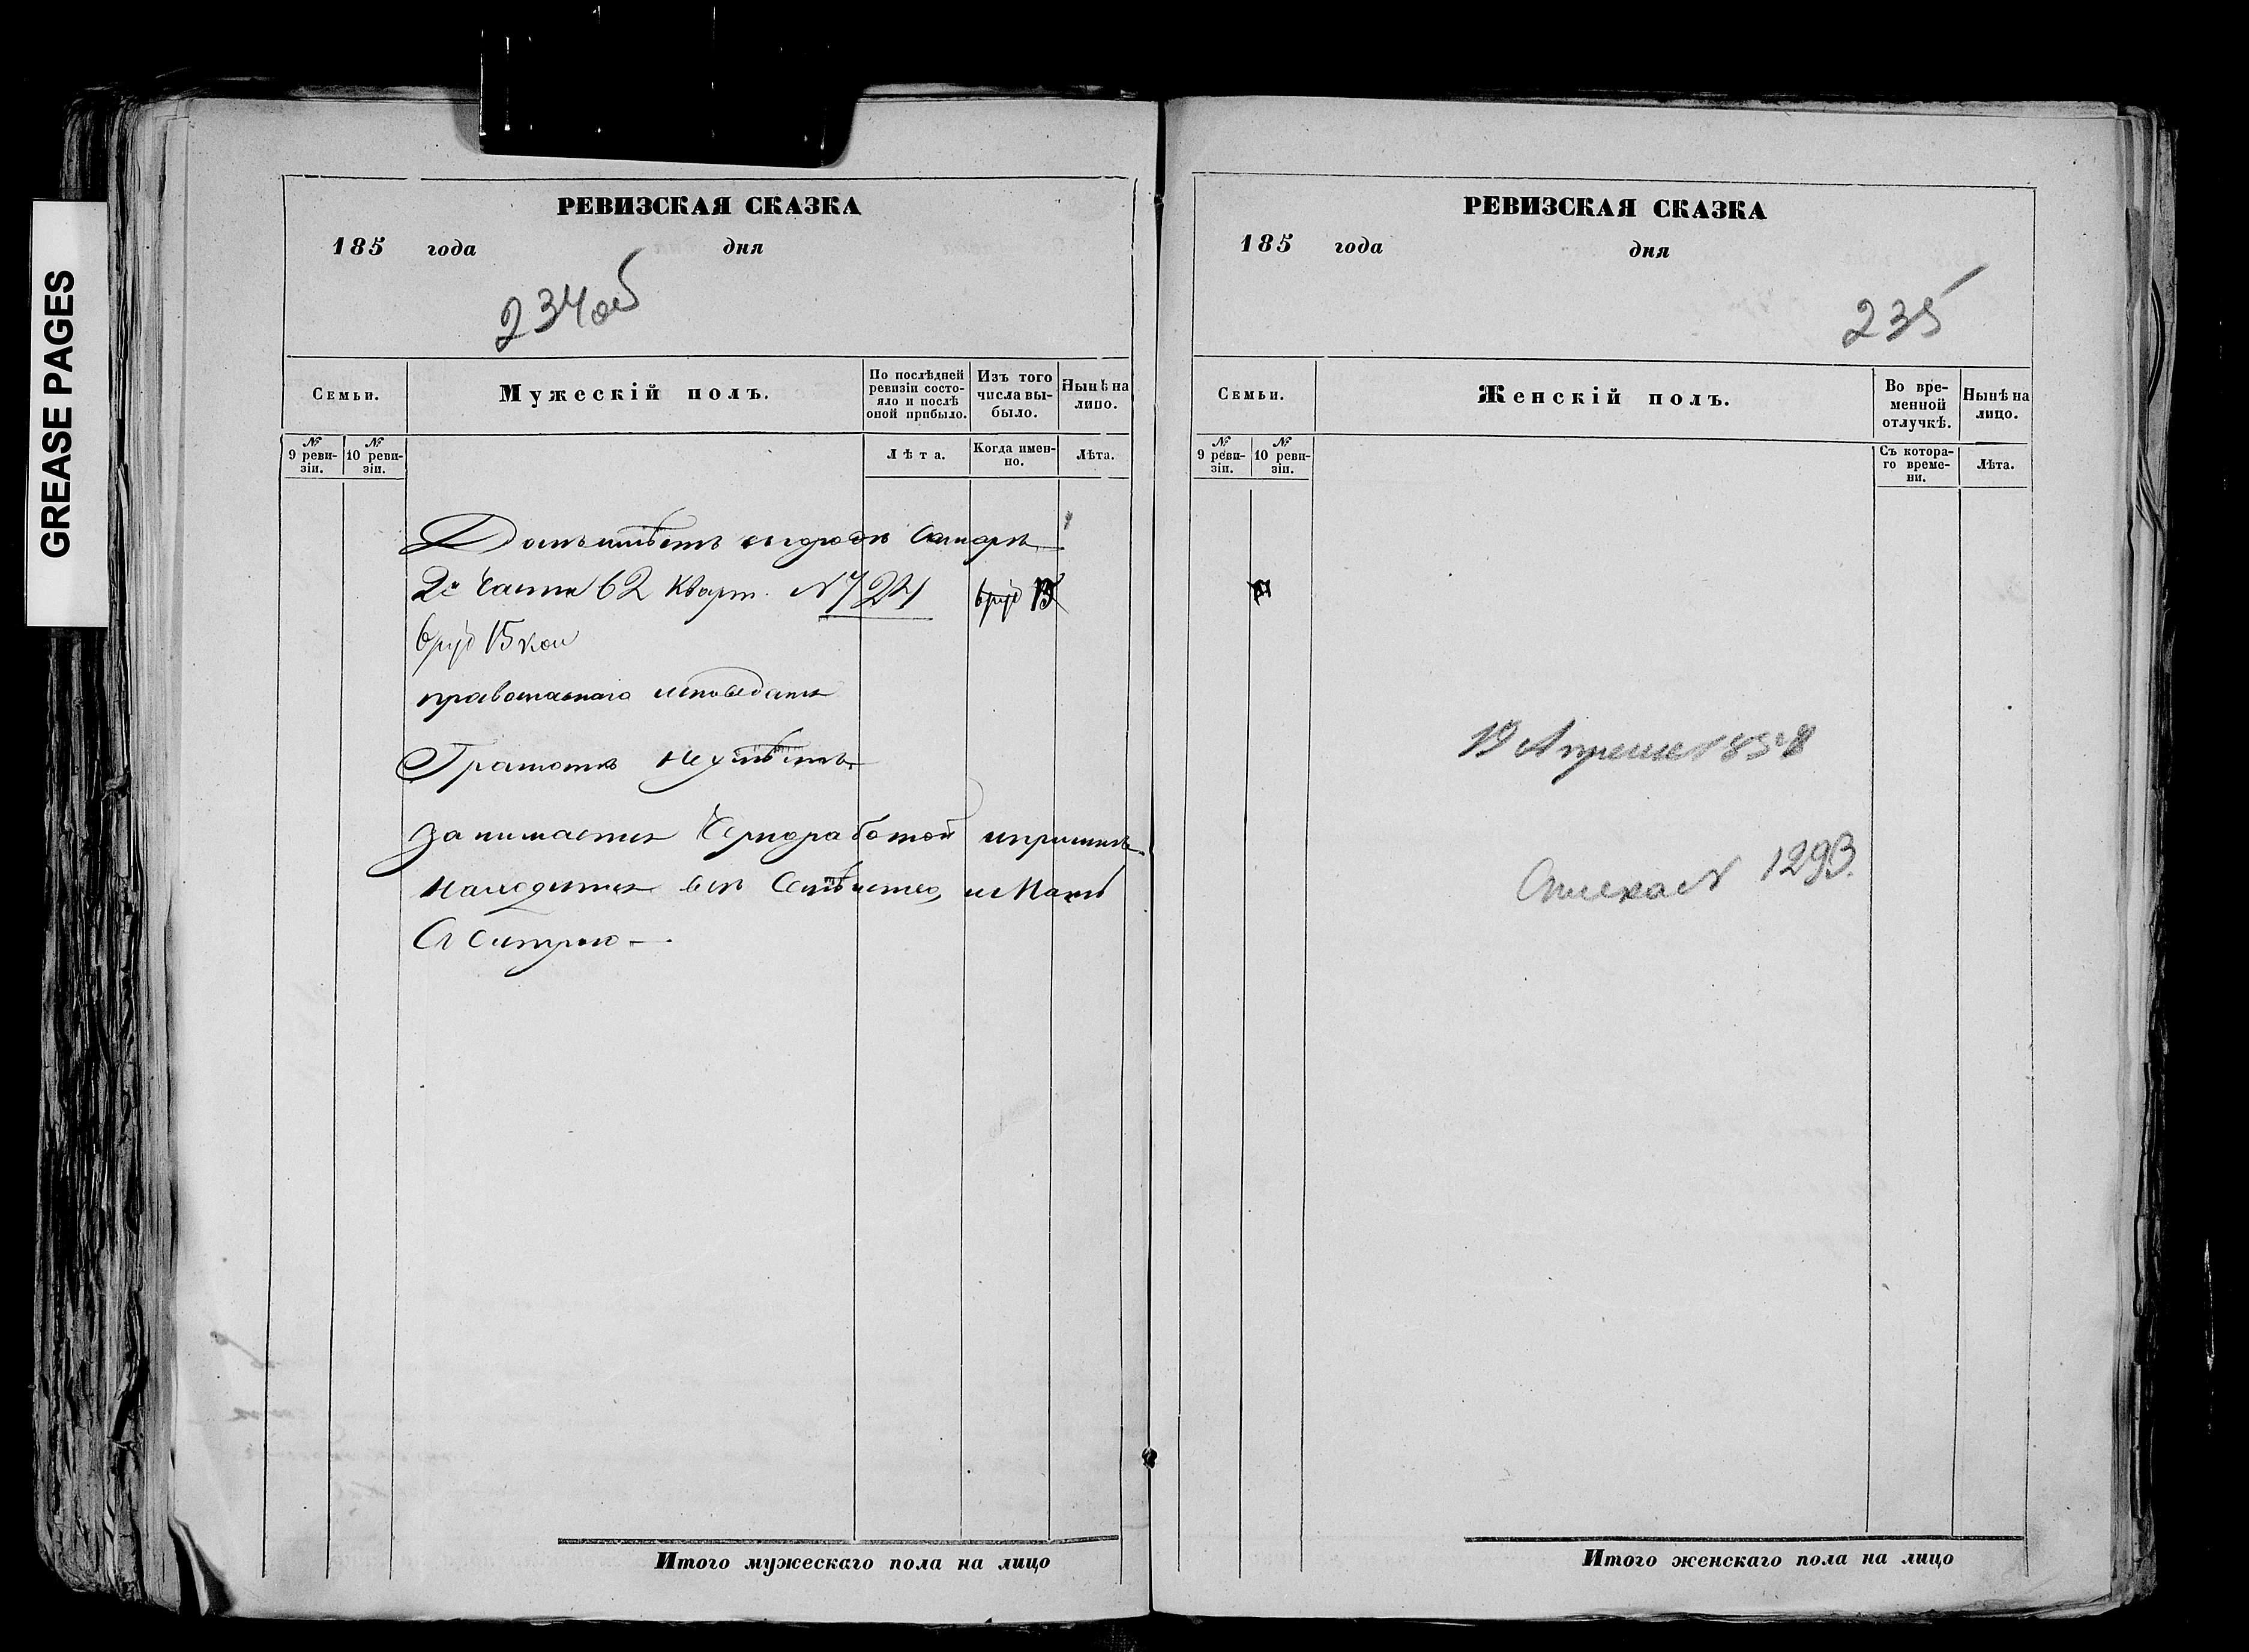 GREASE PAGES
РЕВИЗСКАЯ СКАЗКА
185 года дня
234об
Семьи.
Мужескій полъ.
По послѣдней ревизіи состояло и послѣ оной прибыло.
Изъ того числа выбыло.
Нынѣ на лицо.
№ 9 ревизіи.
№ 10 ревизіи.
Лѣта.
Когда именно.
Лѣта.
Домъ имѣетъ въ городѣ Самарѣ
2й части 62 кварт. № 724
6 руб 15 коп
православнаго исповѣданія
Грамотѣ не умѣетъ
занимается Черноработой и при немъ
находится все Семѣйство, и Мать
Съ Сестрою
Итого мужескаго пола на лицо
РЕВИЗСКАЯ СКАЗКА
185 года дня
235
Семьи.
Женскій полъ.
Во временной отлучкѣ.
Нынѣ на лицо.
№ 9 ревизіи.
№ 10 ревизіи.
Съ котораго времени.
Лѣта.
19 Апреля 1858
Списка № 1293.
Итого женскаго пола на лицо